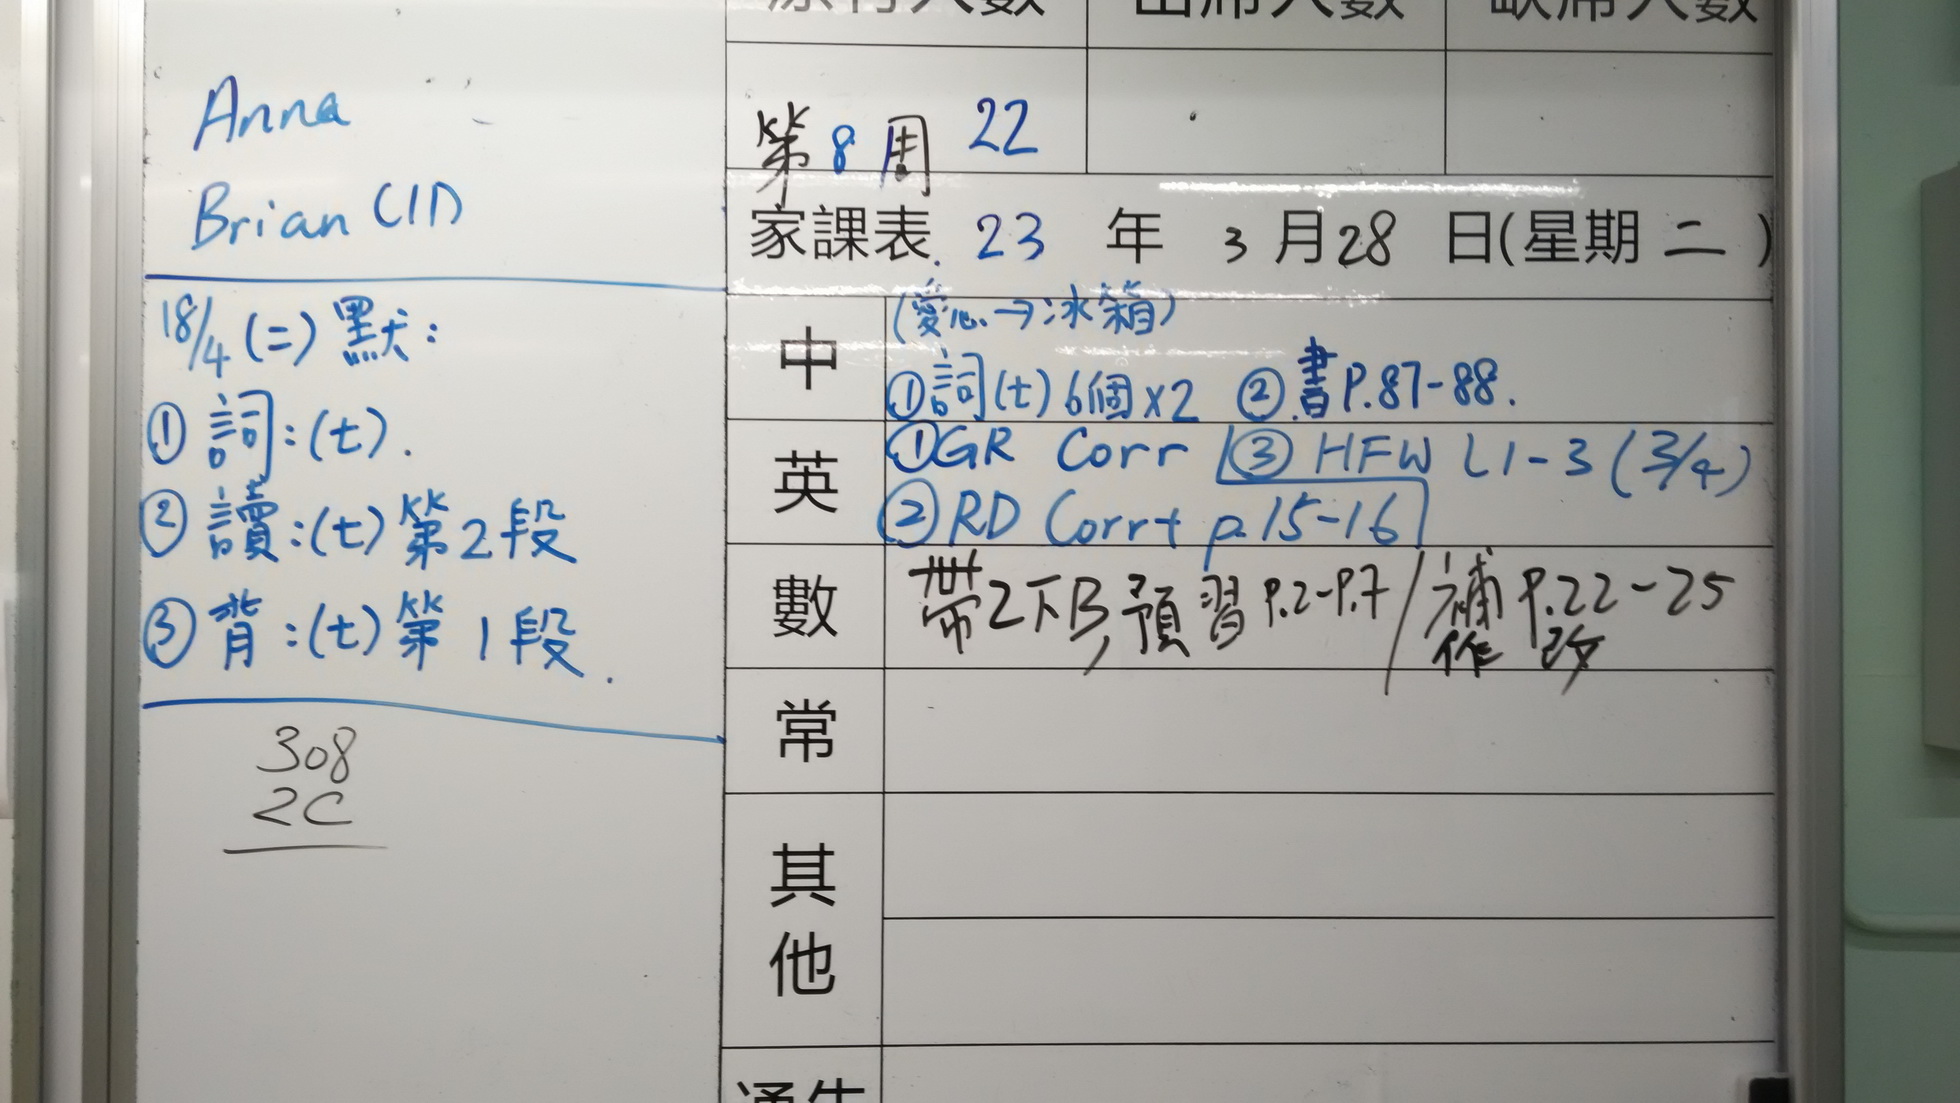 Anna
Brian (1D)
18/4 (二) 默:
① 詞:(七).
② 讀:(七) 第2段
③ 背:(七) 第1段.
308
2C
原有人數 出席人數 缺席人數
第8周 22
家課表 23 年 3 月 28 日(星期 二 )
中
(愛心→冰箱)
①詞(七)6個x2 ②書P.87-88.
英
①GR Corr ③ HFW L1-3 (3/4)
②RD Corr+ p.15-16
數
帶2下B,預習P.2-P.7/補P.22-25
作 改
常
其
他
通告